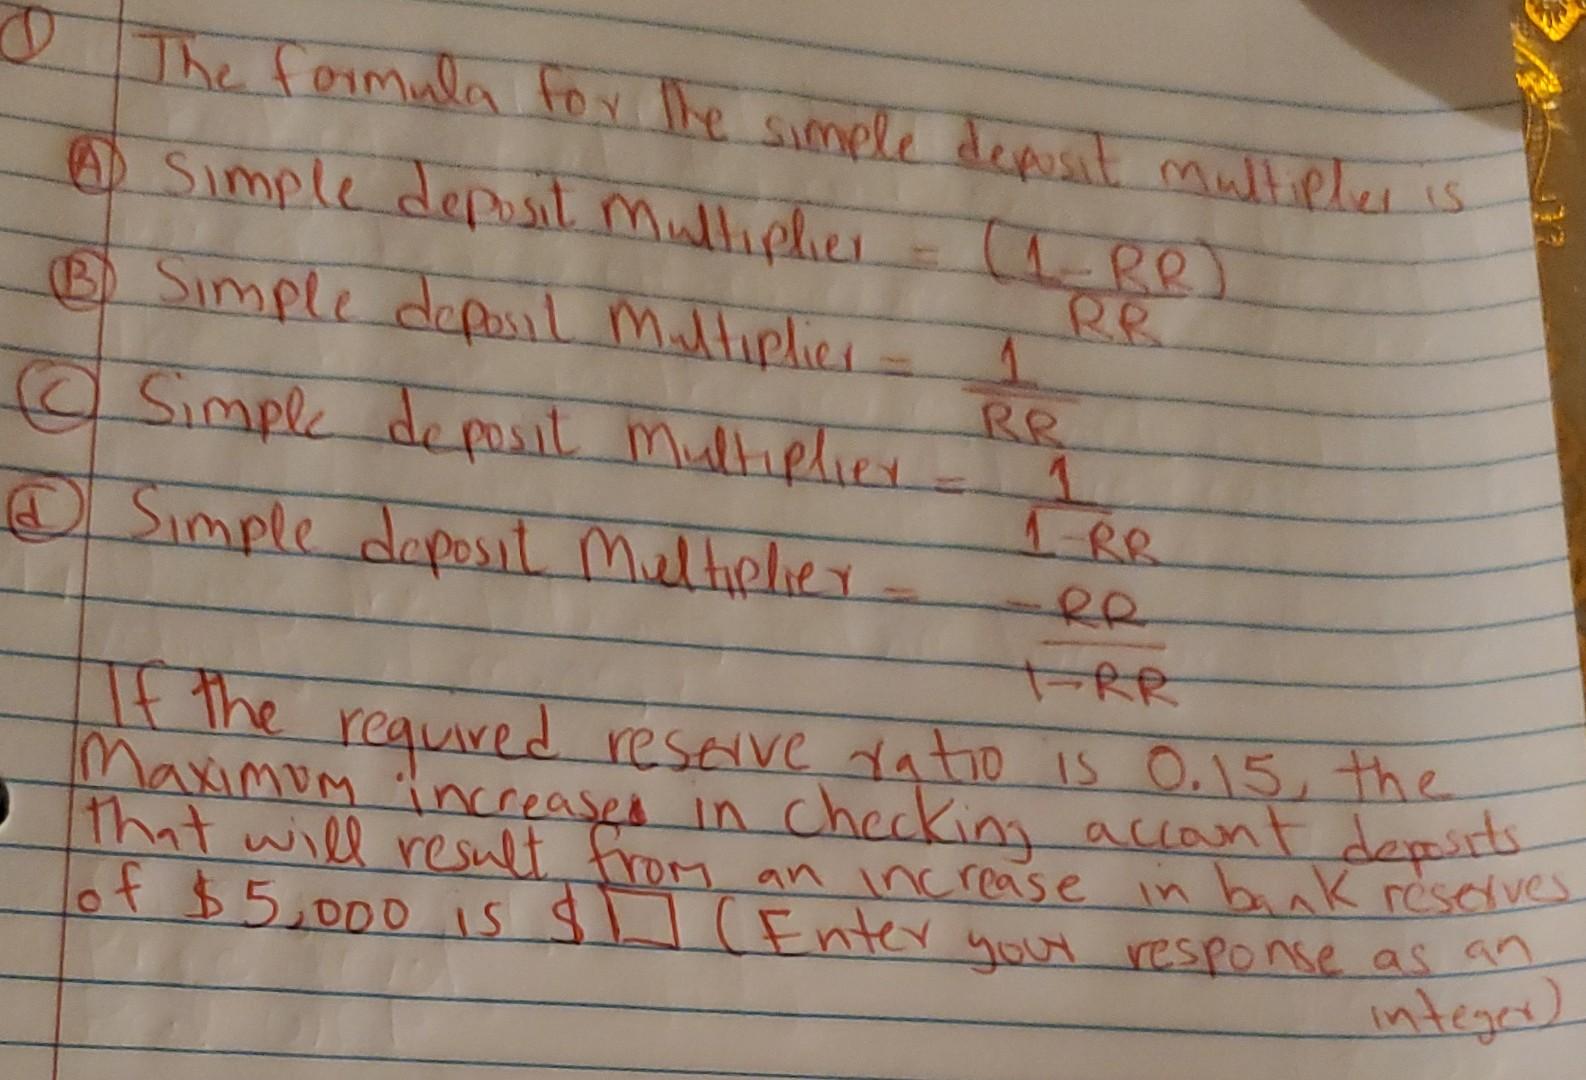 ① The formula for the simple deposit multiplier is
Ⓐ Simple deposit Multiplier = (1-RR)/RR
Ⓑ Simple deposit Multiplier = 1/RR
Ⓒ Simple deposit Multiplier = 1/1-RR
ⓓ Simple deposit Multiplier = -RR/1-RR
If the required reserve ratio is 0.15, the
Maximum increases in checking account deposits
that will result from an increase in bank reserves
of $5,000 is $☐ (Enter your response as an
integer)